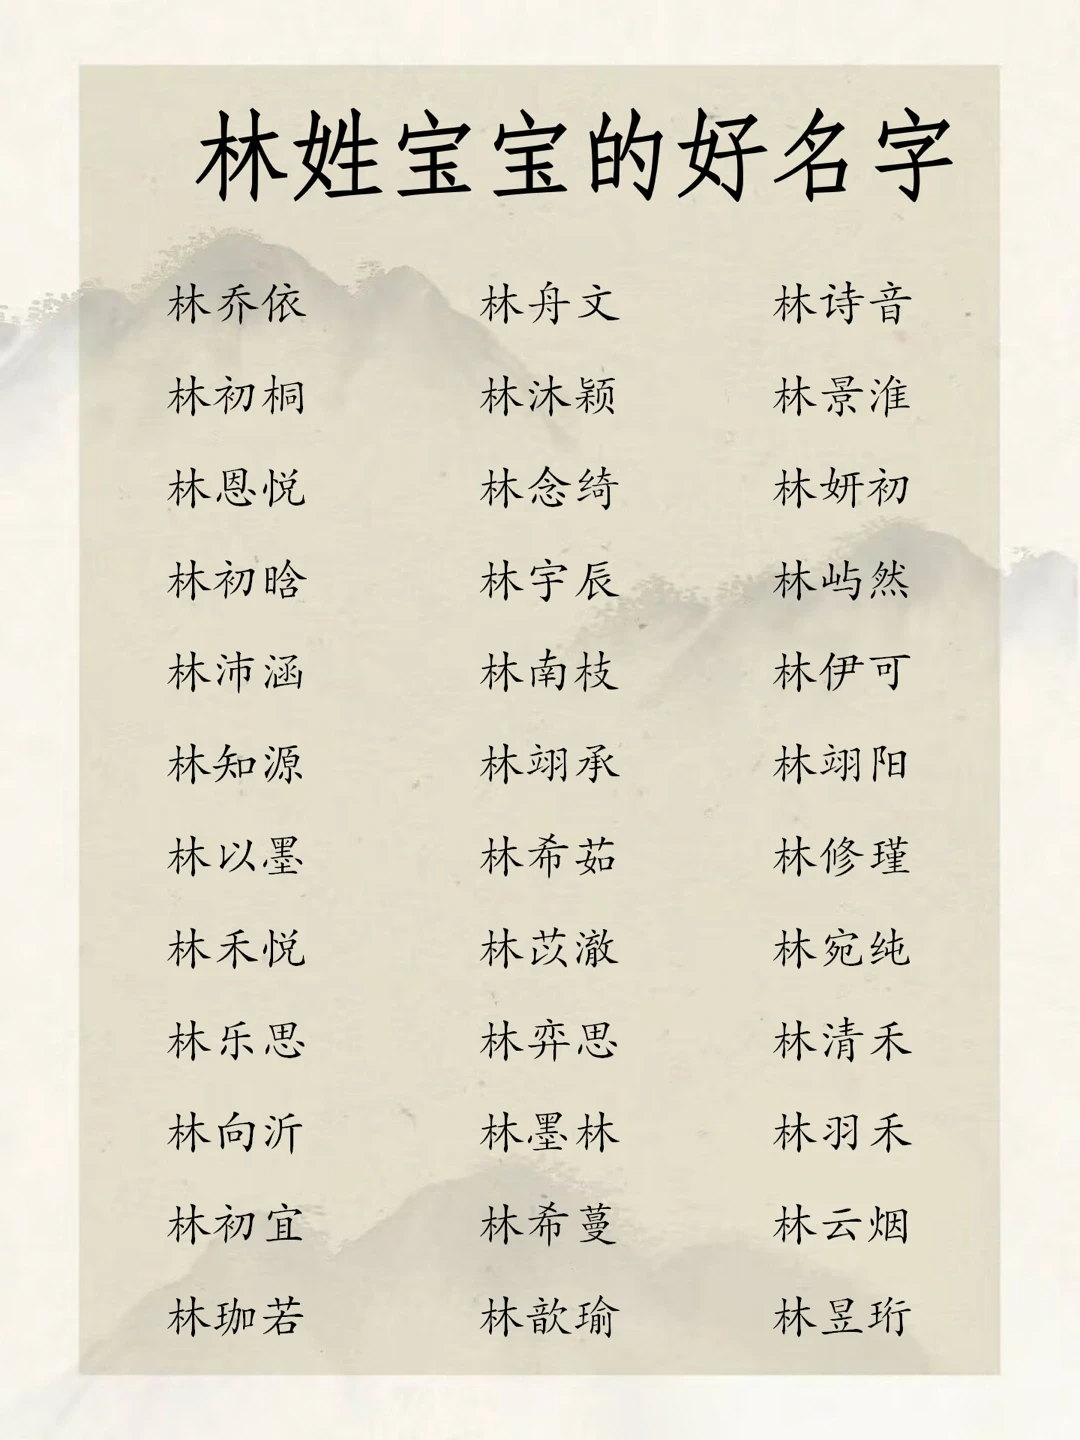 林姓宝宝的好名字
林乔依 林舟文 林诗音
林初桐 林沐颖 林景淮
林恩悦 林念绮 林妍初
林初晗 林宇辰 林屿然
林沛涵 林南枝 林伊可
林知源 林翊承 林翊阳
林以墨 林希茹 林修瑾
林禾悦 林苡澈 林宛纯
林乐思 林弈思 林清禾
林向沂 林墨林 林羽禾
林初宜 林希蔓 林云烟
林珈若 林歆瑜 林昱珩